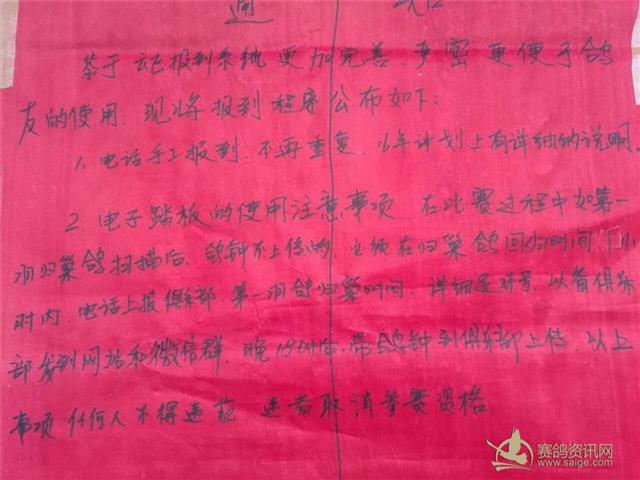 通
鉴于云飞报到系统更加完善、严密更便于鸽
友的使用、现将报到程序公布如下:
1、电话手工报到、不再重复、16年计划上有详细的说明。
2、电子踏板的使用注意事项 在比赛过程中如第一
羽归巢鸽扫描后、鸽钟不上传的、必须在归巢鸽回归时间
时内、电话上报俱乐部、第一羽鸽归巢时间、详细足环号、以备俱乐
部发到网站和微信群、晚18时后、带鸽钟到俱乐部上传、以上
事项任何人不得违犯 违者取消参赛资格。
赛鸽资讯网
www.saige.com